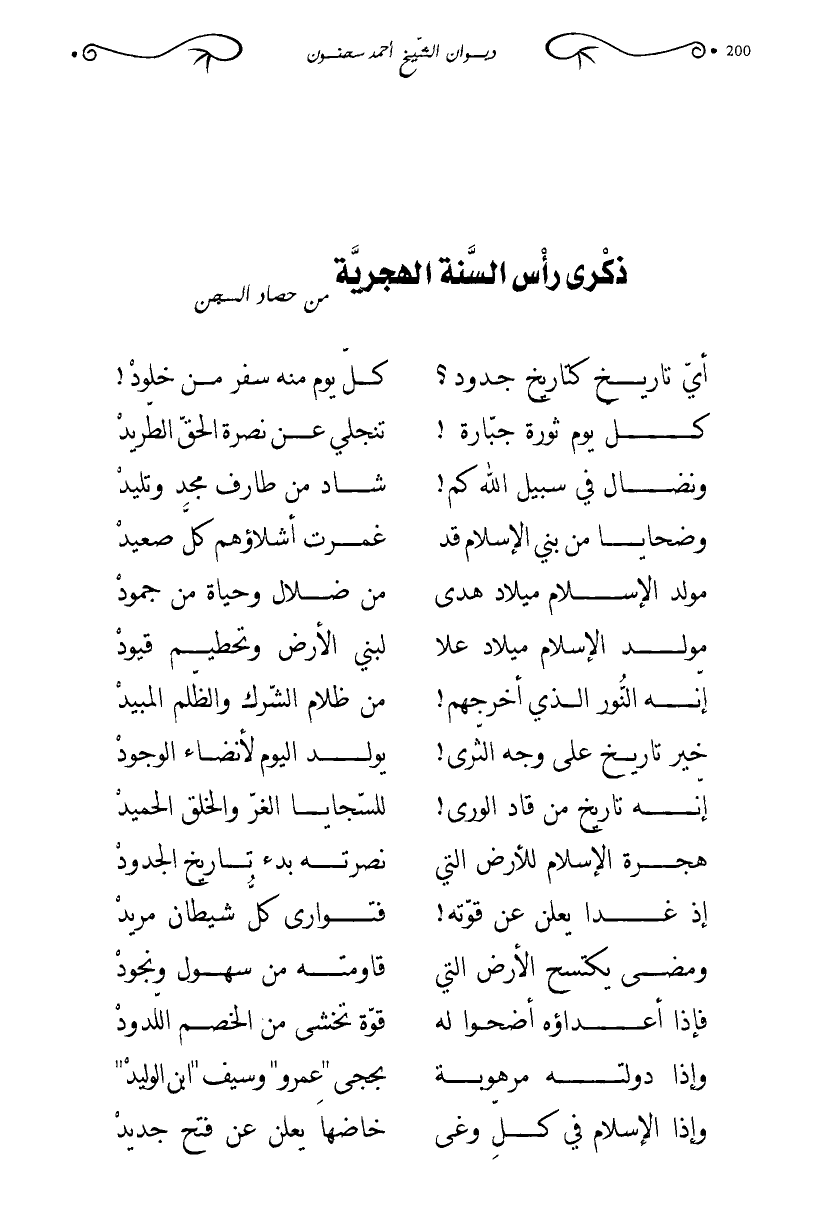 200 ديـوان الشّيخ أحمد سحنـون
ذكْرى رأْس السَّنة الهجريَّة
من حصاد السجن
أيّ تاريـخ كتاريخ جـدود ؟ كـلّ يوم منه سفر مـن خلودْ !
كـل يوم ثورة جبّارة ! تنجلي عـن نصرة الحقّ الطّريدْ
ونضـال في سبيل الله كم! شـاد من طارف مجدٍ وتليدْ
وضحايـا من بني الإسلام قد غمـرت أشلاؤهم كل صعيدْ
مولد الإسـلام ميلاد هدى من ضـلال وحياة من جمودْ
مولـد الإسلام ميلاد علا لبني الأرض وتحطيـم قيودْ
إنّـه النُّور الـذي أخرجهم! من ظلام الشّرك والظّلم المبيدْ
خير تاريـخ على وجه الثّرى! يولـد اليوم لأنضـاء الوجودْ
إنّـه تاريخ من قاد الورى! للسّجايـا الغرّ والخلق الحميدْ
هجـرة الإسلام للأرض التي نصرتـه بدء تـاريخ الجدودْ
إذ غـدا يعلن عن قوّته! فتـوارى كلُّ شيطان مريدْ
ومضـى يكتسح الأرض التي قاومتـه من سهـول ونجودْ
فإذا أعـداؤه أضحـوا له قوّة تخشى من الخصـم اللدودْ
وإذا دولتـه مرهوبـة بحجى "عمرو" وسيف "ابن الوليدْ"
وإذا الإسلام في كـلّ وغى خاضها يعلن عن فتح جديدْ